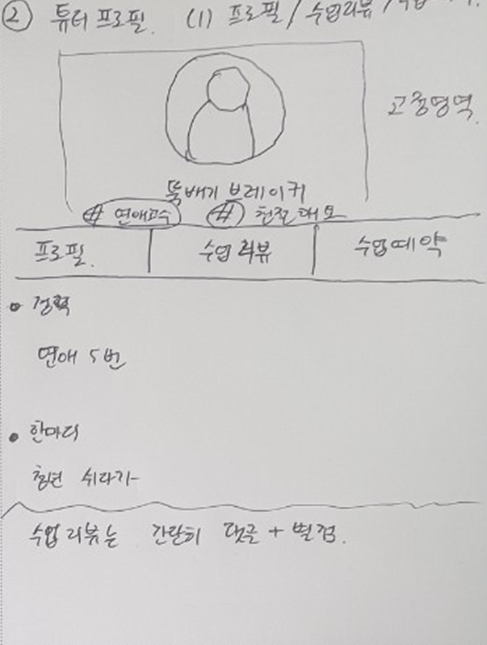 ② 튜터 프로필. (1) 프로필 / 수업리뷰 /
고정영역.
뚝배기 브레이커
# 연애고수 # 친절대모
프로필. 수업 리뷰 수업예약
• 경력
연애 5번
• 한마디
쉬다가-
수업 리뷰는 간단히 댓글 + 별점.